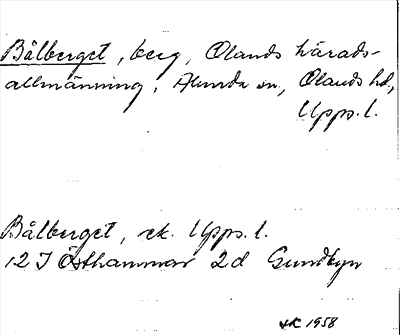 Bålberget, berg, Olands härads-
allmänning, Alunda sn, Olands hd,
Upps. l.
Bålberget, ek. Upps. l.
12 I Östhammar 2d Gundbyn
EK 1958